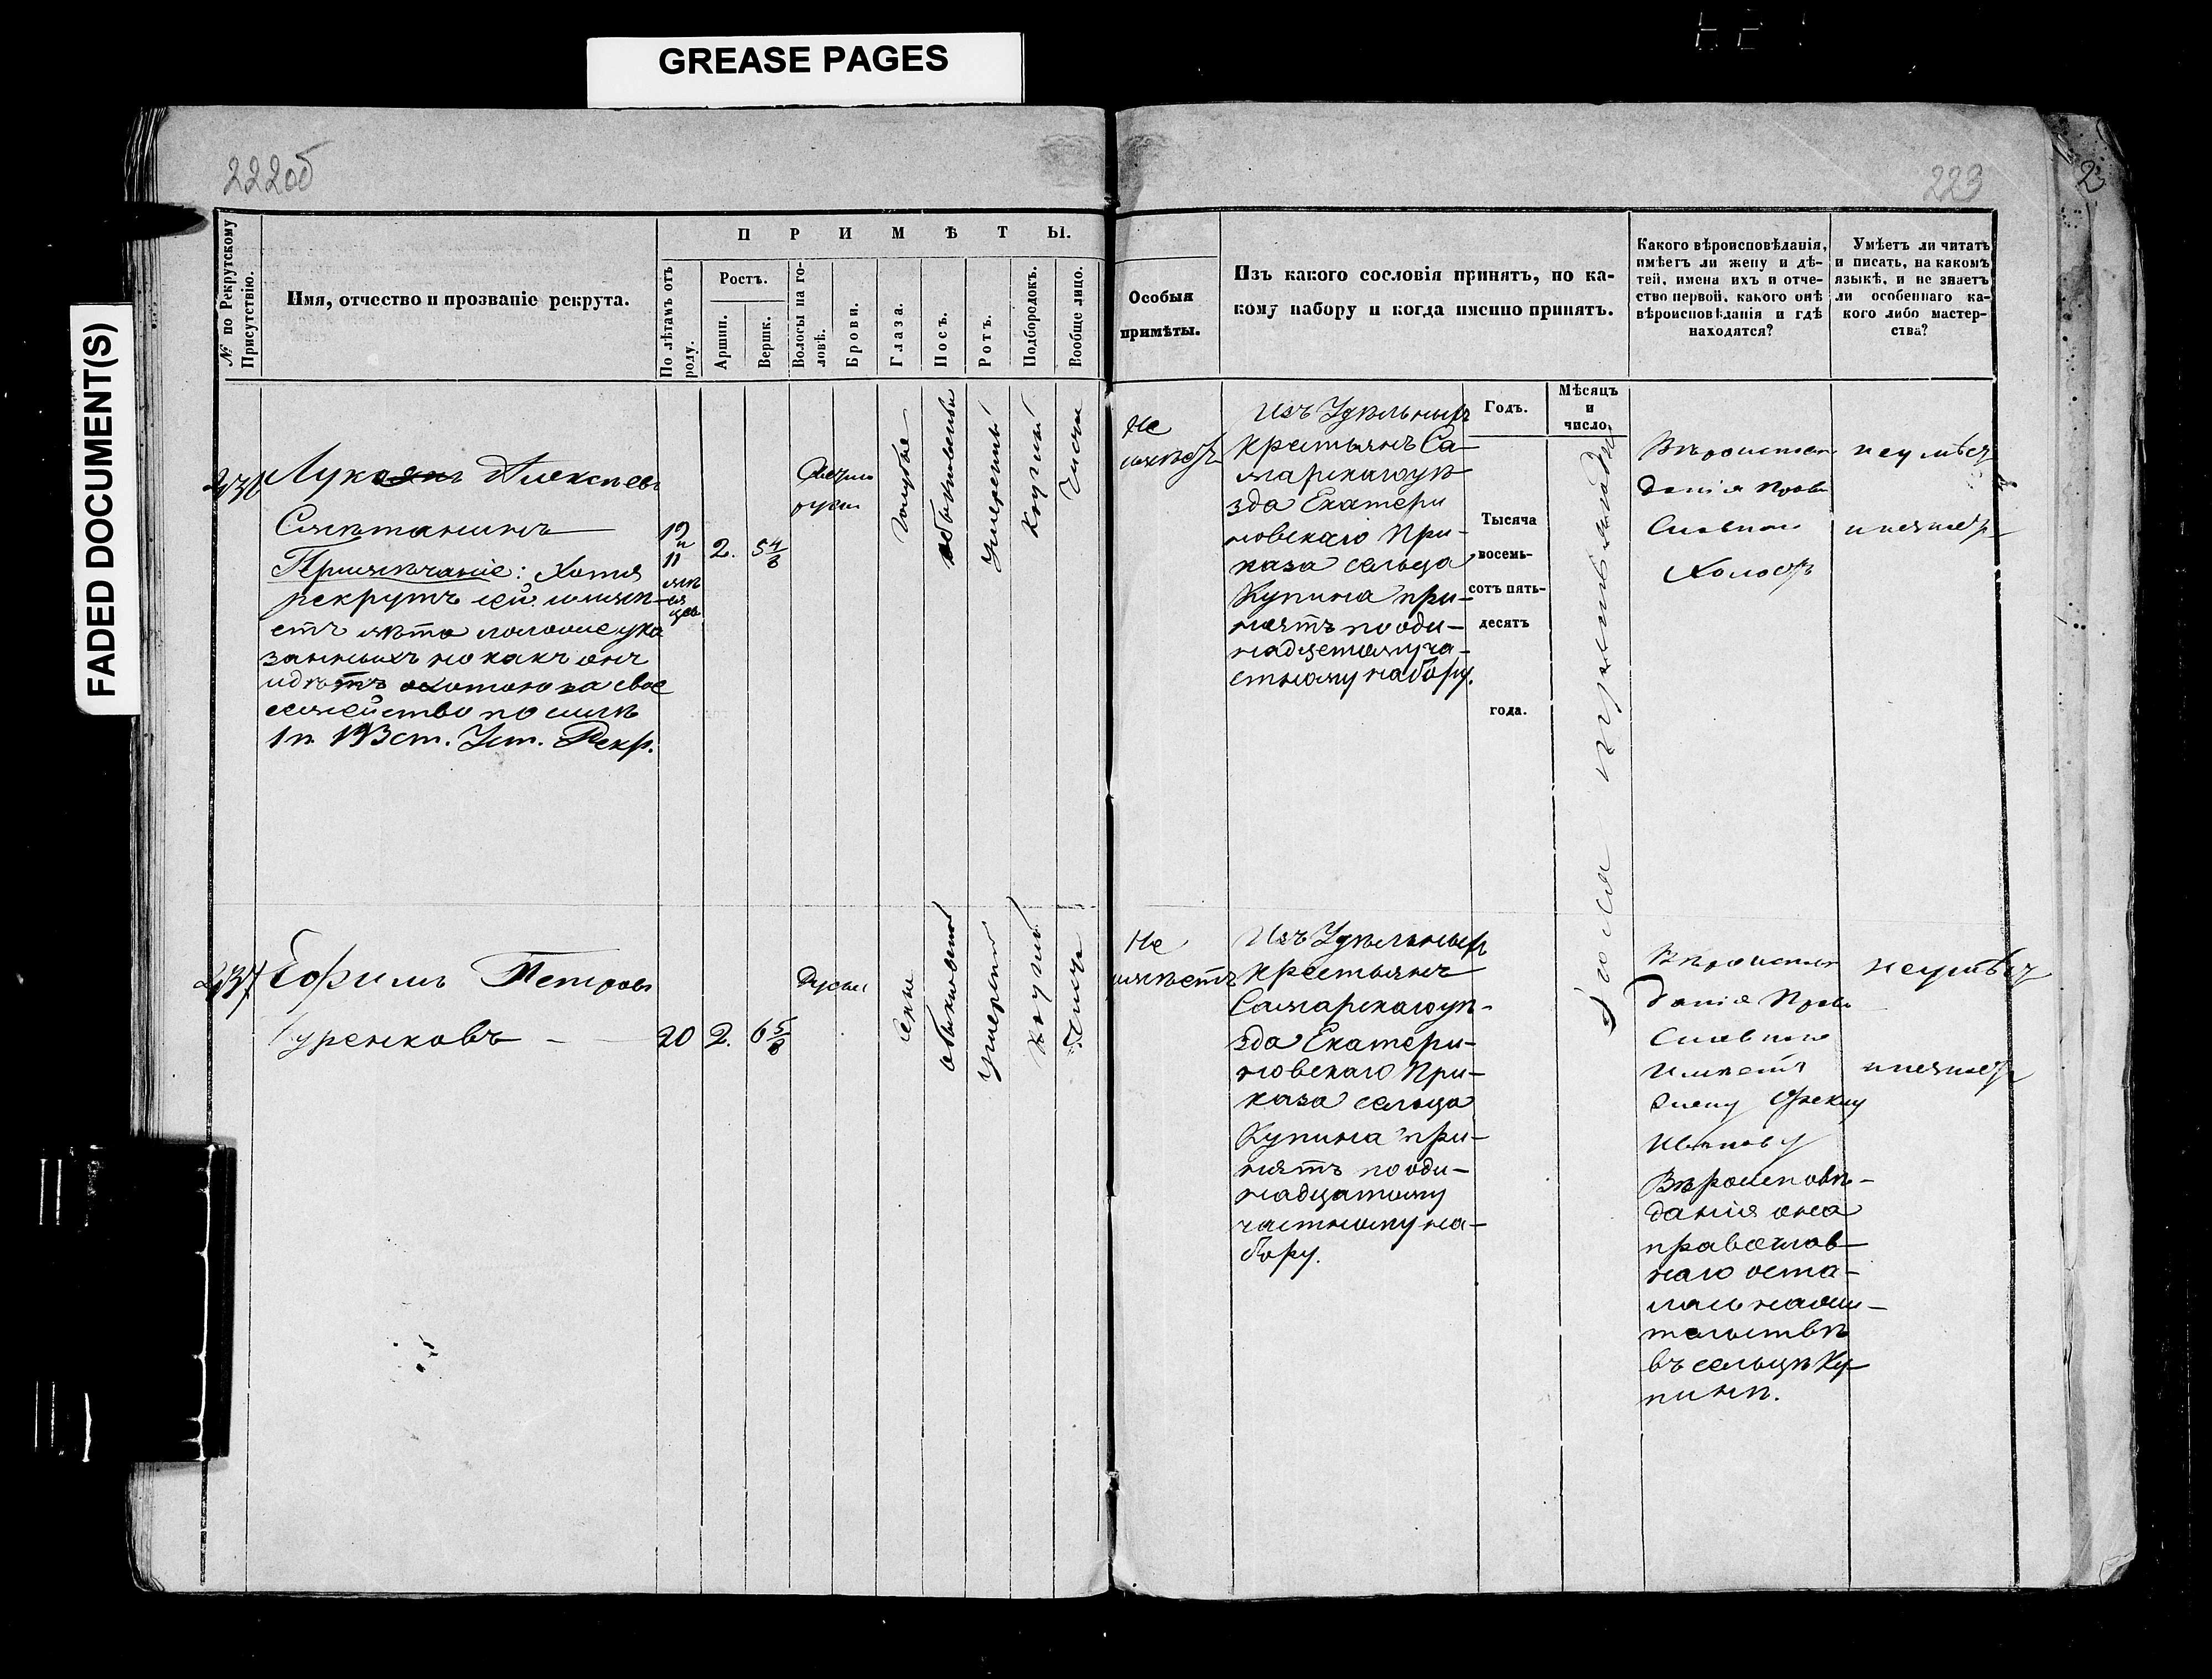 GREASE PAGES
FADED DOCUMENT(S)
222об
223
№ по Рекрутскому Присутствію.
Имя, отчество и прозваніе рекрута.
ПРИМѢТЫ.
По лѣтамъ отъ роду.
Ростъ.
Аршин.
Вершк.
Волосы на головѣ.
Брови.
Глаза.
Носъ.
Ротъ.
Подбородокъ.
Вообще лицо.
Особыя
примѣты.
Изъ какого сословія принятъ, по ка-
кому набору и когда именно принятъ.
Какого вѣроисповѣданія,
имѣетъ ли жену и дѣ-
тей, имена ихъ и отче-
ство первой, какого онѣ
вѣроисповѣданія и гдѣ
находятся?
Умѣетъ ли читать
и писать, на какомъ
языкѣ, и не знаетъ
ли особеннаго ка-
кого либо мастер-
ства?
Годъ.
Мѣсяцъ
и
число.
Тысяча
восемь-
сотъ пять-
десятъ
года.
236
Алексѣевъ
Сметанинъ
Примѣчаніе: Хотя
рекрутъ сей имѣ-
етъ лѣта указанныхъ но какъ онъ
идетъ охотою за свое
семейство по силѣ
1 п 193 ст. Уст. Рекр.
19
и
11
мѣ
ся
цев
2.
5 4/8
Светло
русы
голубые
обыкновенный
умеренный
круглый
чистое
Не
имѣетъ
Изъ Удѣльныхъ
крестьянъ Са
марскаго уѣ
зда Екатери
новскаго При-
каза сельца
Купина при-
нятъ по оди-
надцетому ча-
стному набору.
Вѣроиспов
данія Право
Славнаго
Холостъ
неумѣет
и незнаетъ
237
Ефимъ Петровъ
Гуренковъ
20
2.
6 5/8
Русые
серые
обыкновенный
умеренный
круглый
чистое
Не
имѣетъ
Изъ Удѣльныхъ
крестьянъ
Самарскаго уѣ-
зда Екатери-
новскаго При-
каза сельца
Купина при-
нятъ по оди-
надцатому
частному на-
бору.
Вѣроиспов
данія Право
Славнаго
Имѣетъ
жену
Иванову
Вѣроисповѣ-
данія она
православ-
наго оста-
лась на жи-
тельствѣ
въ сельцѣ Ку-
пинѣ.
неумѣет
и незнаетъ